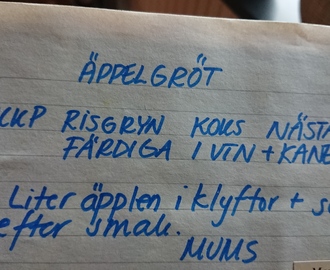 ÄPPELGRÖT
KKP RISGRYN KOKS NÄSTA
FÄRDIGA I VTN + KANE
Liter äpplen i klyftor + s
efter smak.
MUMS